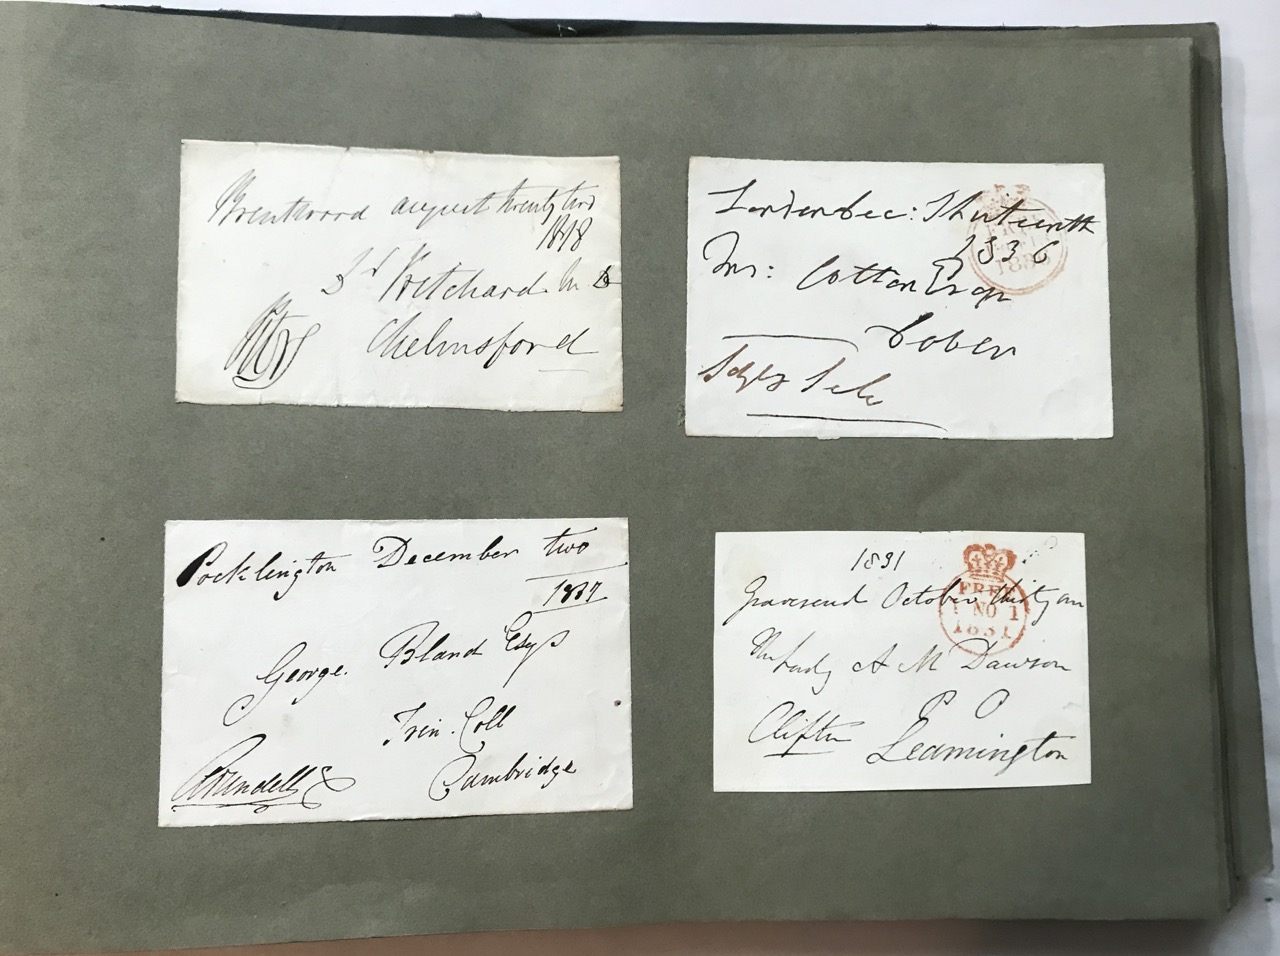 Brentwood august twenty two
1818
Pritchard M D
Chelmsford
London Dec: Thirteenth
1836
Cotton Esqr
FREE
1831
Pocklington December two
1837
George Bland Esqr
Trin. Coll
Cambridge
Arundell
1831
Gravesend October thirty one
FREE
1 NO 1
1831
Lady A M Dawson
P O
Clifton
Leamington